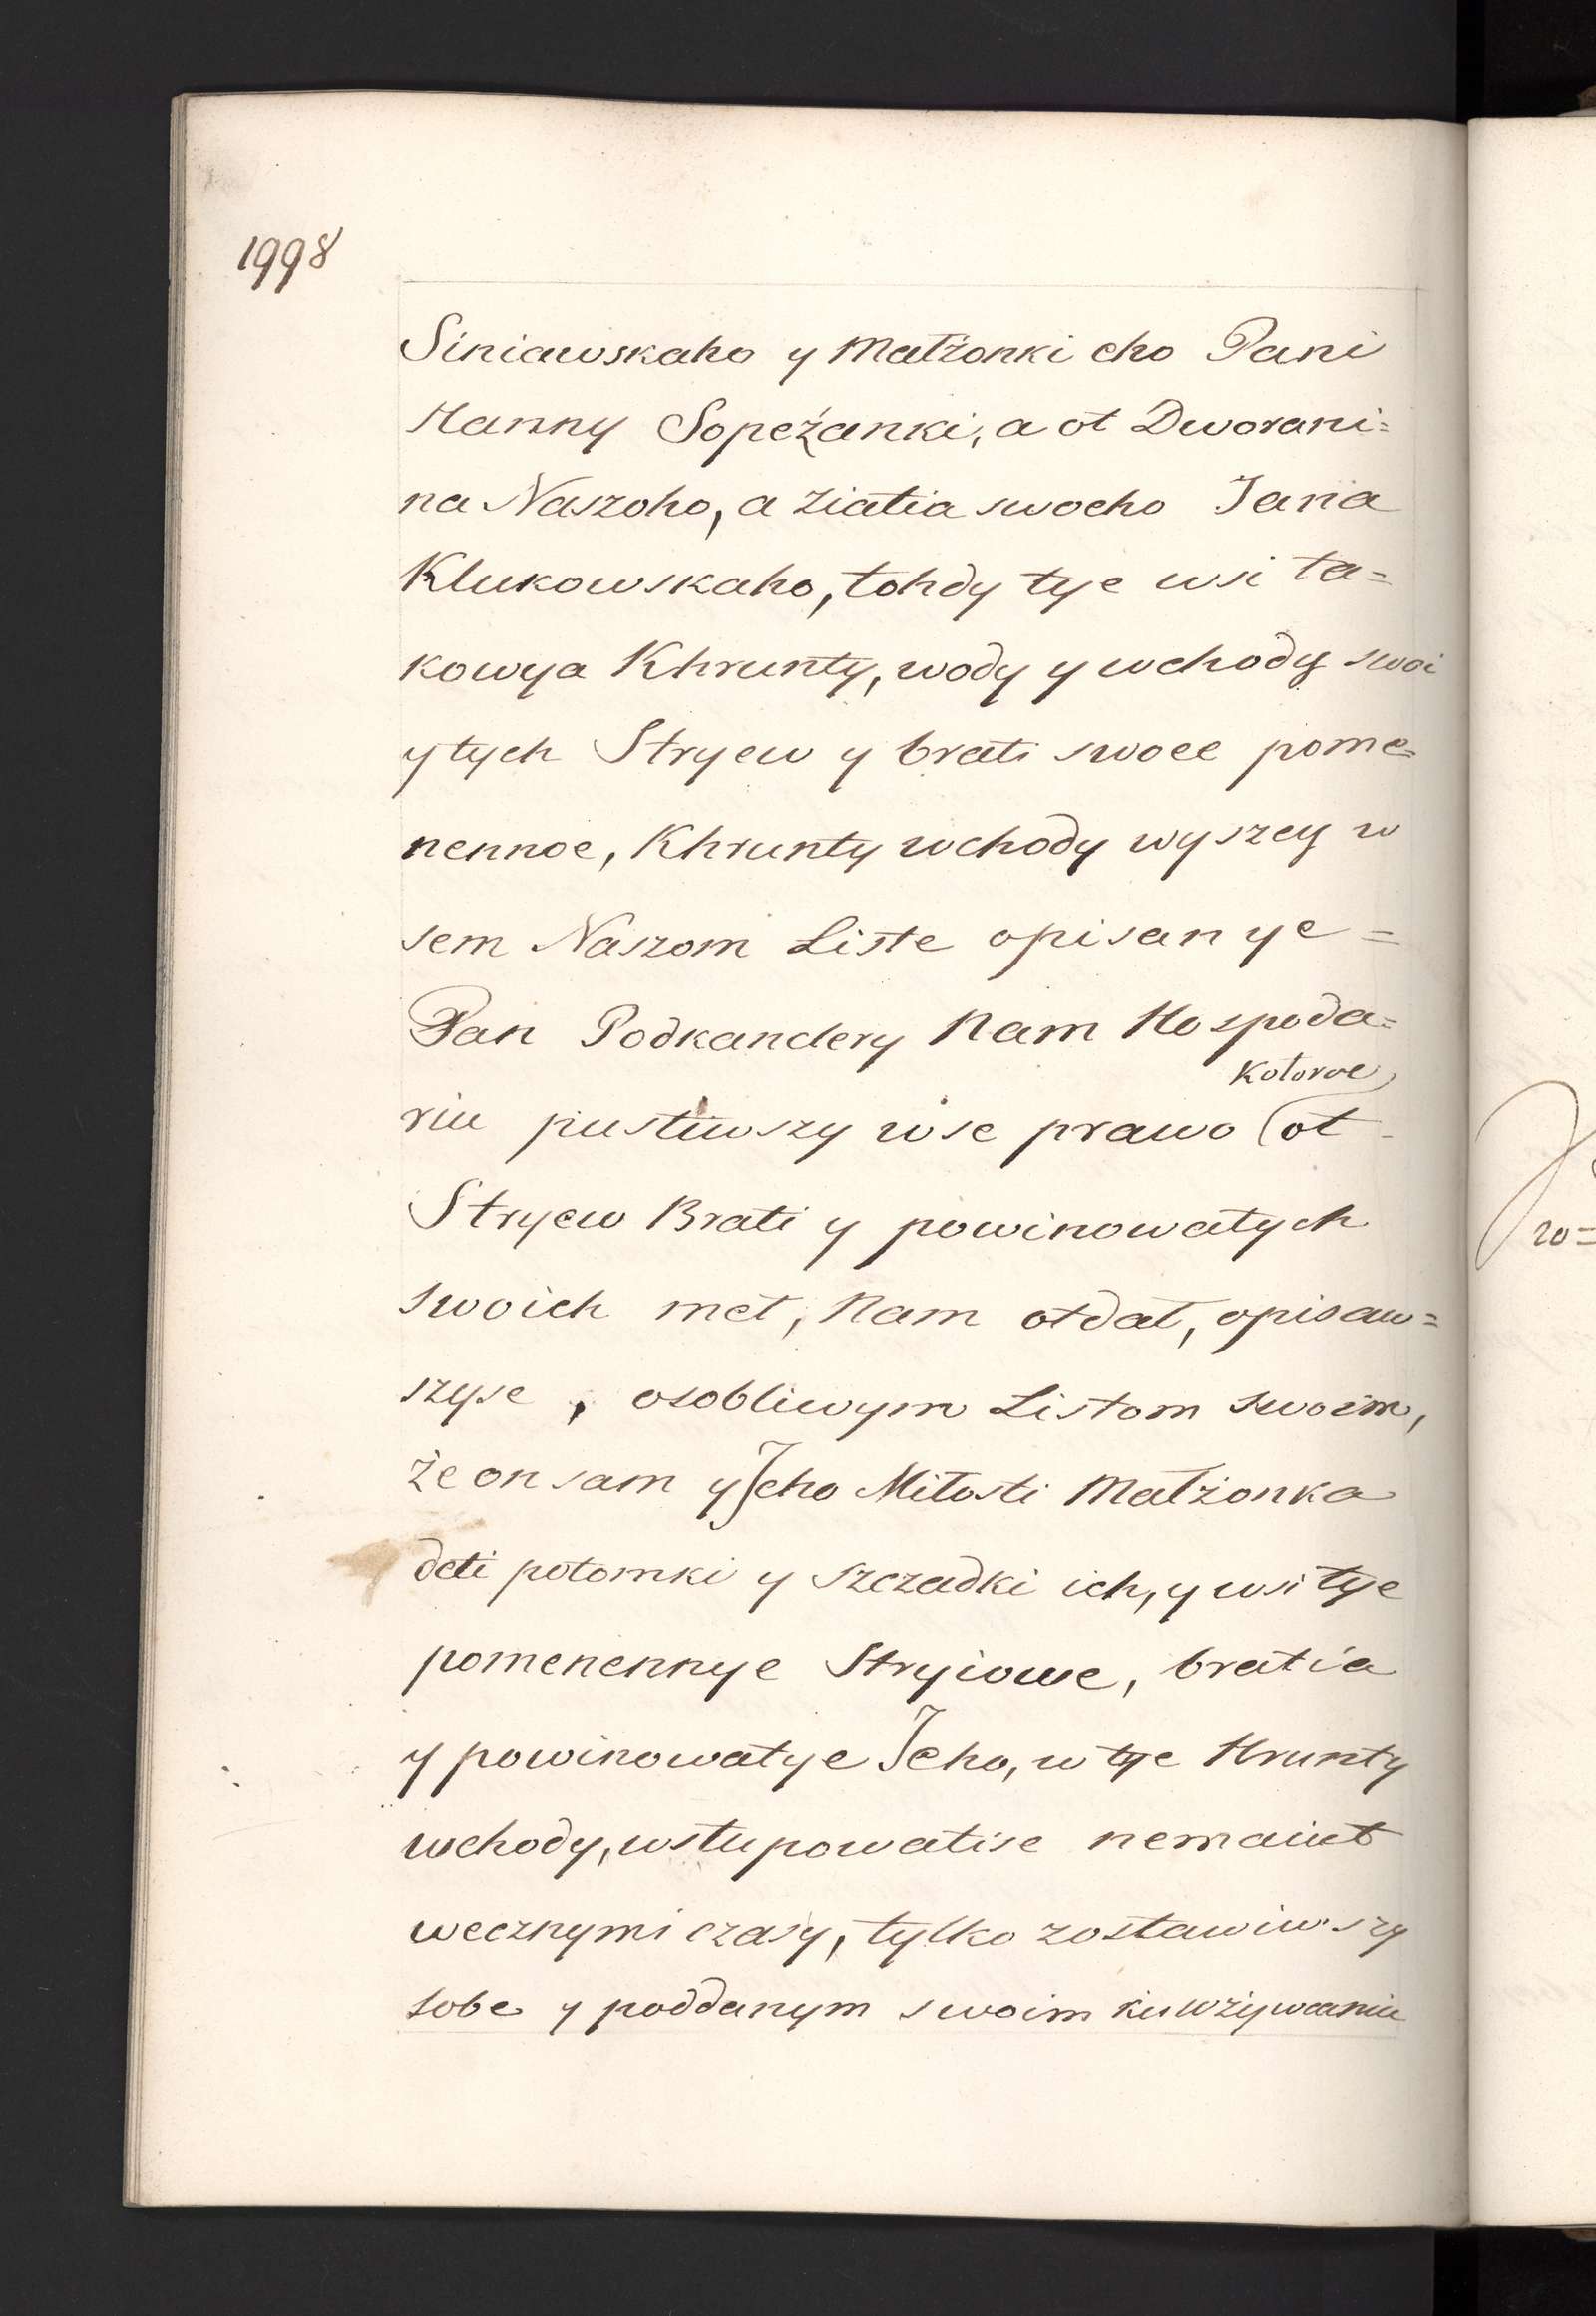 1998
Siniawskaho y Małżonki eho Pani
Hanny Sopeżanki, a ot Dworani=
na Naszoho, a ziatia swoeho Jana
Klukowskaho, tohdy tye wsi ta=
kowya Khrunty, wody y wchody swoi
y tych Stryew y brati swoee pome=
nennoe, Khrunty wchody wyszey w
sem Naszom Liste opisanye =
Pan Podkanclery Nam Hospoda=
kotoroe
riu pustiwszy wse prawo ot
Stryew Brati y powinowatych
swoich met, Nam otdał, opisaw=
szyse, osobliwym Listom swoim,
że on sam y Jeho Miłosti Małżonka
deti potomki y szczadki ich, y wsi tye
pomenennye Stryiowe, bratia
y powinowatye Jeho, w tye Hrunty
wchody, wstupowatise nemaiut
wecznymi czasy, tylko zostawiwszy
sobe y poddanym swoim ku wżywaniu
ro=